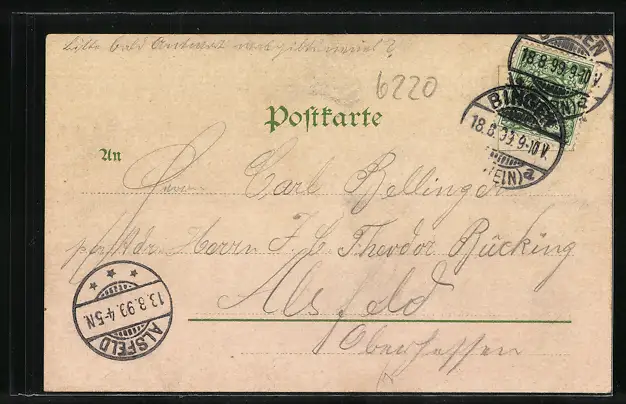 Bitte bald Antwort
6220
BINGEN
18.8.99.9-10V.
(RHEIN) a
BINGEN
18.8.99.9-10V.
(RHEIN) a
Postkarte
An
Herrn Carl Bellinger
per Adr. Herrn J. C. Theodor Bücking
Alsfeld
Oberhessen
13.8.99.4-5N.
ALSFELD